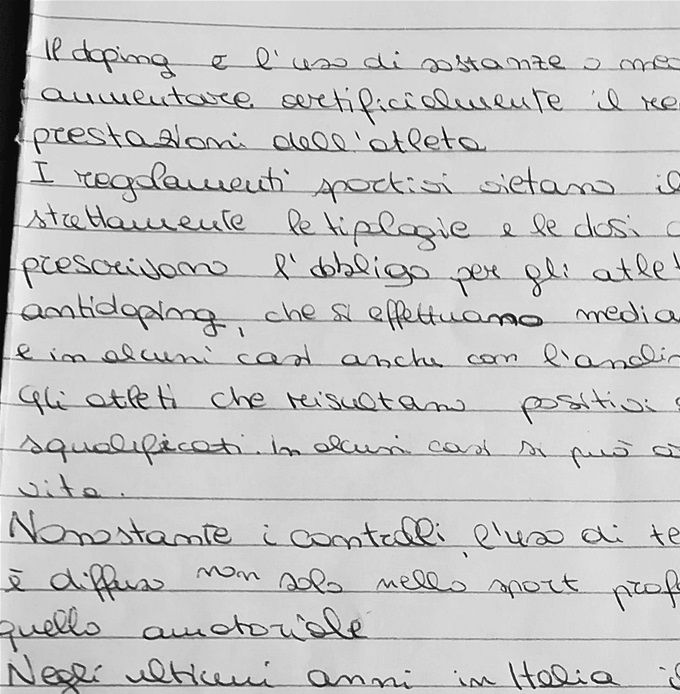 Il doping è l'uso di sostanze o
aumentare artificialmente il
prestazioni dell'atleta
I regolamenti sportivi vietano il
strettamente le tipologie e le dosi
prescrivono l'obbligo per gli
antidoping, che si effettuano
e in alcuni casi anche con
Gli atleti che risultano positivi
squalificati. In alcuni casi si può
vita.
Nonostante i controlli, l'uso di
è diffuso non solo nello sport
quello amatoriale
Negli ultimi anni in Italia